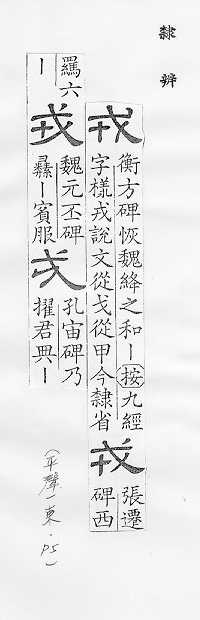 隸辨
戎
衡方碑恢魏絳之和｜按九經
字樣戎說文從戈從甲今隸省
戎
張遷
碑西
羈六
｜
戎
魏元丕碑
彝｜賓服
戎
孔宙碑乃
擢君典｜
(平聲一東.P5)